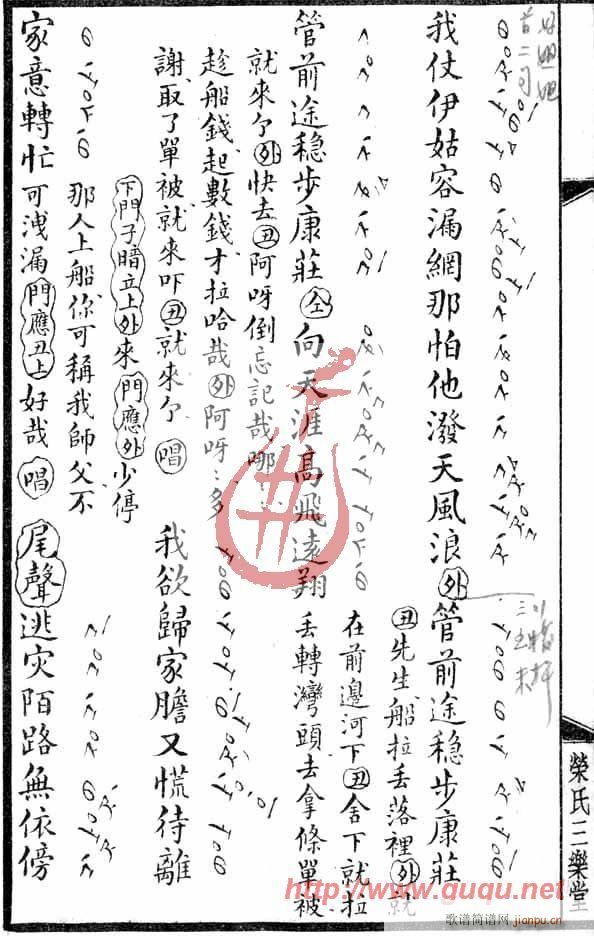 我仗伊姑容漏網那怕他潑天風浪外管前途穩步康莊
丑先生船拉丢落裡外就
在前邊河下丑舍下就拉
管前途穩步康莊仝向天涯高飛遠翔丢轉灣頭去拿條單被
就來个外快去丑阿呀倒忘記哉哪
趁船錢起數錢才拉哈哉外阿呀:多
謝取了單被就來吓丑就來个唱我欲歸家膽又慌待離
下門子暗立上外來門應外少停
那人上船你可稱我師父不
家意轉忙可洩漏門應丑上好哉唱尾聲逃灾陌路無依傍
榮氏三樂堂
http://www.ququ.net
歌谱简谱网 jianpu.cn